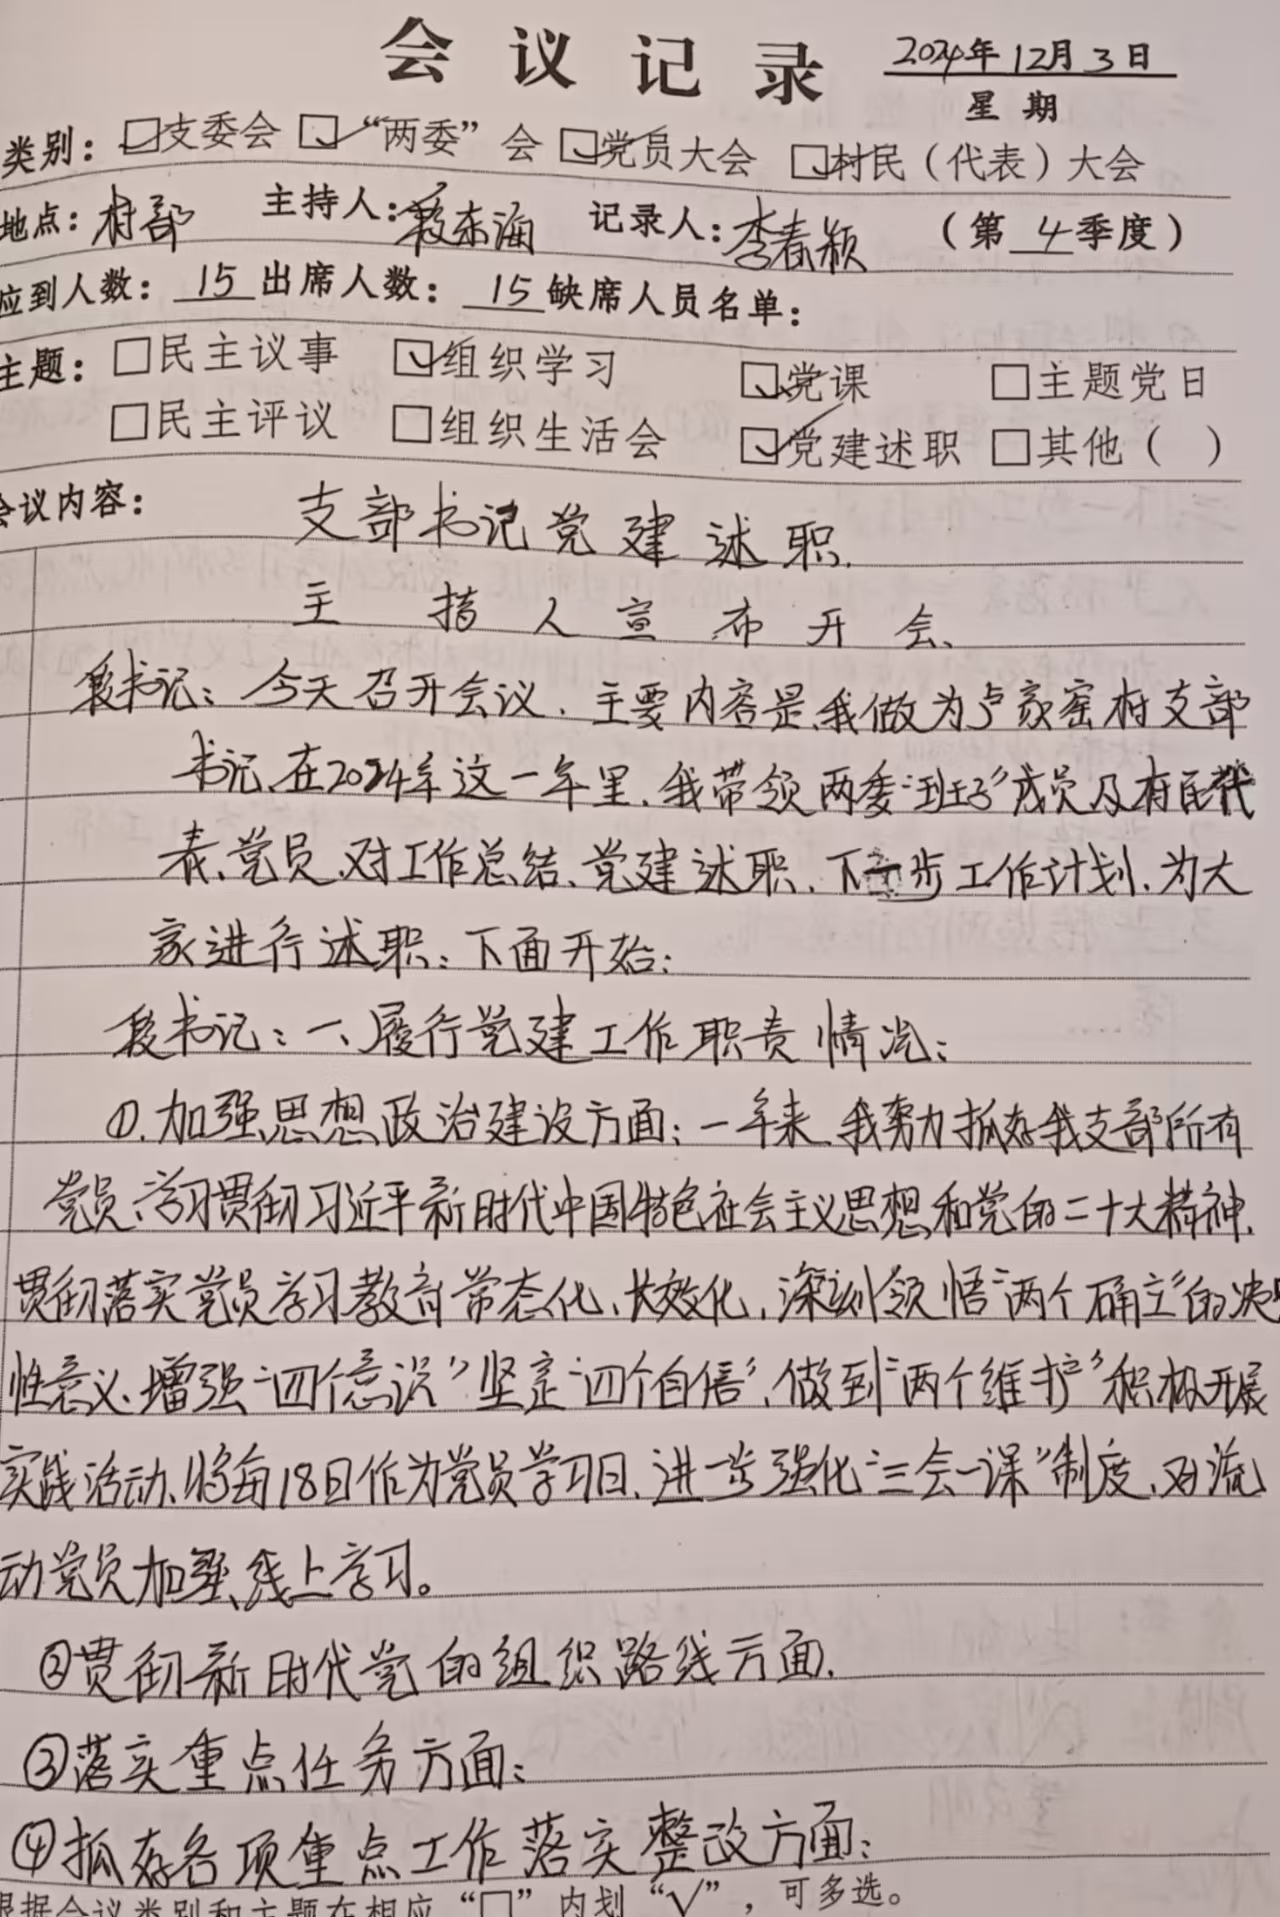 会议记录
2024年12月3日
星期
类别：☑支委会 ☑“两委”会 ☑党员大会 ☑村民（代表）大会
地点：村部 主持人：段东海 记录人：李春颖 （第4季度）
应到人数：15 出席人数：15 缺席人员名单：
主题：□民主议事 ☑组织学习 ☑党课 □主题党日
□民主评议 □组织生活会 ☑党建述职 □其他（ ）
会议内容： 支部书记党建述职.
主 指人宣布开会、
段书记：今天召开会议、主要内容是、我做为卢家窑村支部
书记、在2024年这一年里、我带领两委“班子”成员及村民代
表、党员、对工作总结、党建述职、下一步工作计划、为大
家进行述职：下面开始：
段书记：一、履行党建工作职责情况：
①.加强思想政治建设方面：一年来、我努力抓好我支部所有
党员、学习贯彻习近平新时代中国特色社会主义思想和党的二十大精神、
贯彻落实党员学习教育常态化、长效化、深刻领悟“两个确立”的决
性意义、增强“四个意识”坚定“四个自信”、做到“两个维护”积极开展
实践活动、将每18日作为党员学习日、进一步强化“三会一课”制度、对流
动党员加强线上学习。
②贯彻新时代党的组织路线方面、
③落实重点任务方面：
④抓好各项重点工作落实整改方面：
根据会议类别和主题在相应“□”内划“√”，可多选。